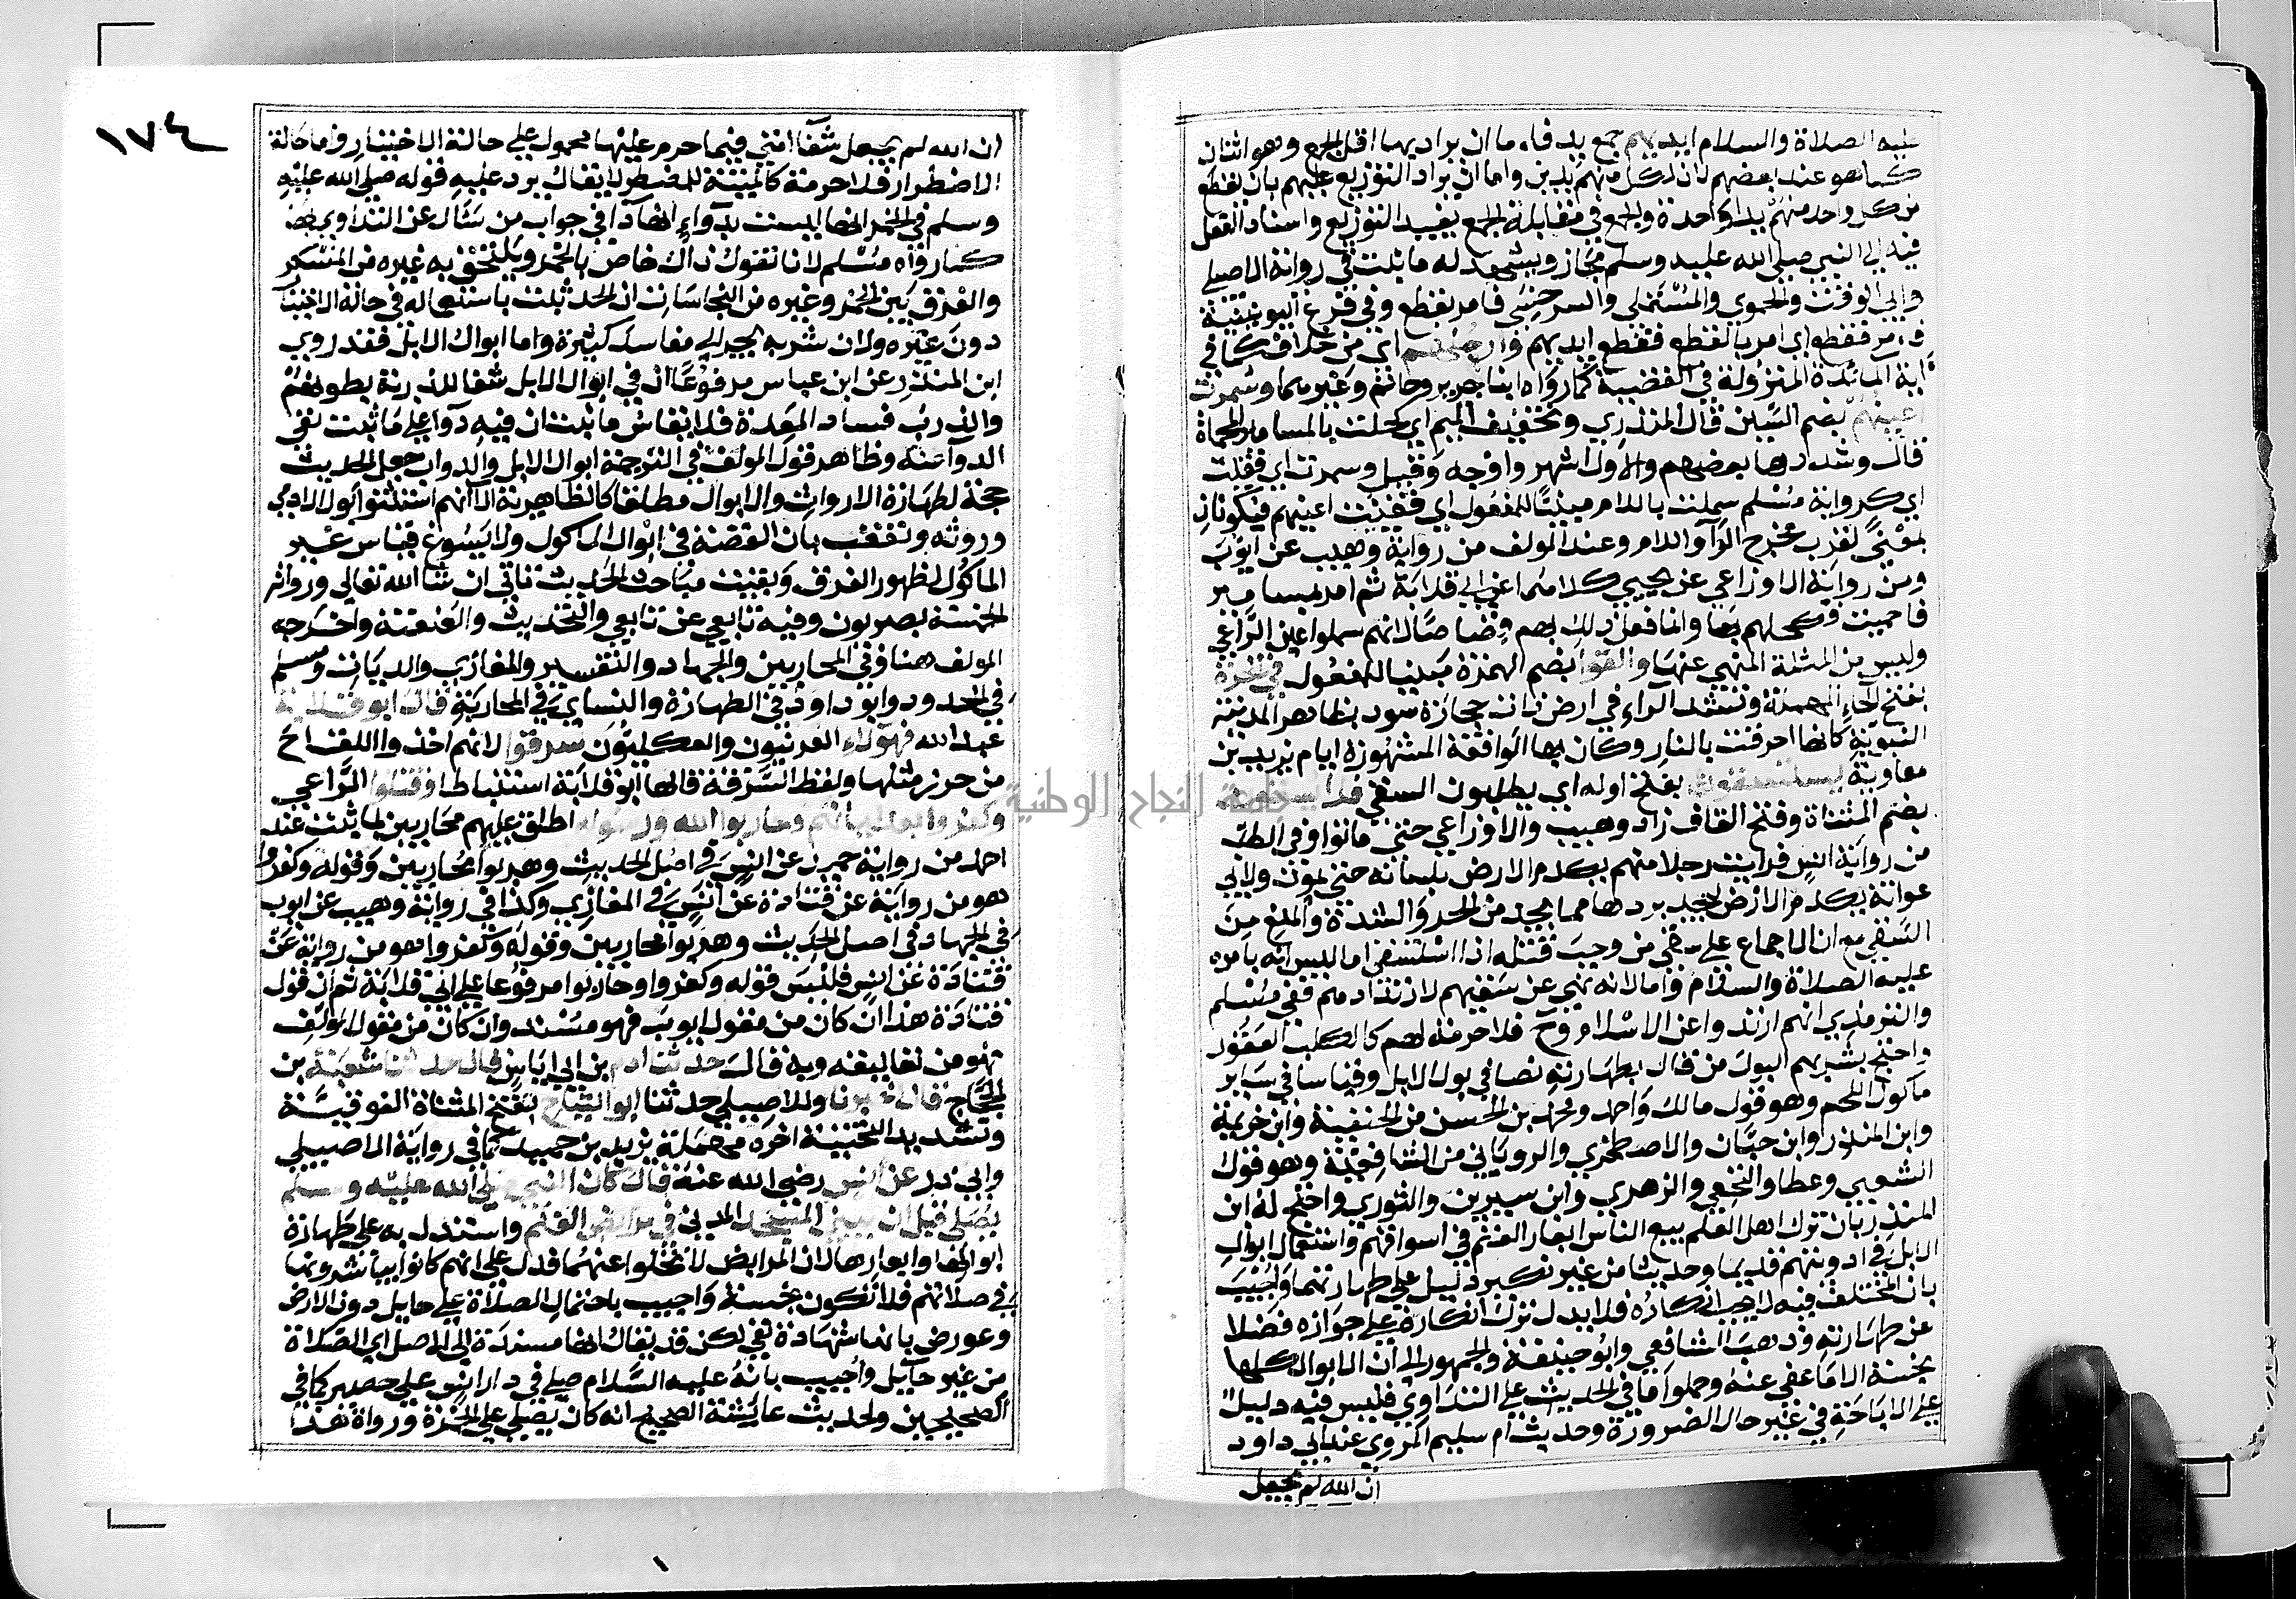 عليه الصلاة والسلام ايديهم جمع يد فاما ان يراد بهما اقل الجمع وهو اثنان
كما هو عند بعضهم لان لكل منهم يدين واما ان يراد التوزيع عليهم بان يقطع
من كل واحد منهم يدا واحدة والجمع في مقابلة الجمع يفيد التوزيع واسناد الفعل
فيه الي النبي صلي الله عليه وسلم مجاز ويشهد له ما ثبت في رواية الاصيلي
وابي الوقت والحموي والمستملي والسرخسي فامر بقطع وفي فرع اليونينية
فامر فقطع اي امر بالقطع فقطع ايديهم وارجلهم اي من خلاف كما في
آية المائدة المنزولة في القضية كما رواه ابنا جرير وحاتم وغيرهما وسمرت
اعينهم بضم السين قال المنذري وتخفيف الميم اي كحلت بالمسامير المحماة
قال وشددها بعضهم والاول اشهر واوجه وقيل وسمرت اي فقئت
اي كرواية مسلم سملت باللام مبنيا للمفعول اي فقئت اعينهم فيكونان
بمعني لقرب مخرج الرآ واللام وعند المولف من رواية وهيب عن ايوب
ومن رواية الاوزاعي عن يحيي كلاهما عن ابي قلابة ثم امر بمسامير
فاحميت فكحلهم بها وانما فعل ذلك بهم قصاصا لانهم سملوا عين الراعي
وليس من المثلة المنهي عنها والقوا بضم الهمزة مبنيا للمفعول في الحرة
بفتح الحاء المهملة وتشديد الراء في ارض ذات حجارة سود بظاهر المدينة
النبوية كانها احرقت بالنار وكان بها الواقعة المشهورة ايام يزيد بن
معاوية يستسقون بفتح اوله اي يطلبون السقي فلا يسقون
بضم المثناة وفتح القاف زاد وهيب والاوزاعي حتي ماتوا وفي الطب
من رواية انس فرايت رجلا منهم يكدم الارض بلسانه حتي يموت ولابي
عوانة يكدم الارض ليجد بردها مما يجد من الحر والشدة والمنع من
السقي مع ان الاجماع علي سقي من وجب قتله اذا استسقي اما لليس انه بامره
عليه الصلاة والسلام واما لانه نهي عن سقيهم لارتدادهم ففي مسلم
والترمذي انهم ارتدوا عن الاسلام وح فلا حرمة لهم كالكلب العقور
واحتج بشربهم البول من قال بطهارته نصا في بول الابل وقياسا في ساير
ماكول اللحم وهو قول مالك واحمد ومحمد بن الحسن من الحنفية وابن خزيمة
وابن المنذر وابن حبان والاصطخري والروياني من الشافعية وهو قول
الشعبي وعطا والنخعي والزهري وابن سيرين والثوري واحتج له ابن
المنذر بان ترك اهل العلم بيع الناس ابعار الغنم في اسواقهم واستعمال ابوال
الابل في ادويتهم قديما وحديثا من غير نكير دليل علي طهارتهما واجيب
بان المختلف فيه لا يجب انكاره فلا يدل ترك انكاره علي جوازه فضلا
عن طهارته وذهب الشافعي وابو حنيفة والجمهور الي ان الابوال كلها
نجسة الا ما عفي عنه وحملوا ما في الحديث علي التداوي فليس فيه دليل
علي الاباحة في غير حال الضرورة وحديث ام سليم المروي عند ابي داود
ان الله لم يجعل
١٧٤
ان الله لم يجعل شفآ امتي فيما حرم عليها محمول علي حالة الاختيار واما حالة
الاضطرار فلا حرمة كالميتة للمضطر لا يقال يرد عليه قوله صلي الله عليه
وسلم في الخمر انها ليست بدواء انها دآ في جواب من سال عن التداوي بها
كما رواه مسلم لانا نقول ذاك خاص بالخمر ويلتحق به غيره من المسكر
والفرق بين الخمر وغيره من النجاسات ان الحد ثبت باستعماله في حالة الاختيار
دون غيره ولان شربه يجر الي مفاسد كثيرة واما ابوال الابل فقد روي
ابن المنذر عن ابن عباس مرفوعا ان في ابوال الابل شفا للذربة بطونهم
والذرب فساد المعدة فلا يقاس ما ثبت ان فيه دوآ علي ما ثبت نفي
الدوآ عنه وظاهر قول المولف في الترجمة ابوال الابل والدواب جعل الحديث
حجة لطهارة الارواث والابوال مطلقا كالظاهرية الا انهم استثنوا بول الادمي
وروثه وتعقب بان القصة في ابوال الماكول ولا يسوغ قياس غير
الماكول لظهور الفرق وبقيت مباحث الحديث تاتي ان شا الله تعالي ورواته
الخمسة بصريون وفيه تابعي عن تابعي والتحديث والعنعنة واخرجه
المولف هنا وفي المحاربين والجهاد والتفسير والمغازي والديات ومسلم
في الحدود وابو داود في الطهارة والنسايي في المحاربة قال ابو قلابة
عبد الله فهولاء العرنيون والعكليون سرقوا لانهم اخذوا اللقاح
من حرز مثلها ولفظ السرقة قالها ابو قلابة استنباطا وقتلوا الراعي
وكفروا بعد ايمانهم وحاربوا الله ورسوله اطلق عليهم محاربين لما ثبت عند
احمد من رواية حميد عن انس في اصل الحديث وهربوا محاربين وقوله وكفروا
هو من رواية عن قتادة عن انس في المغازي وكذا في رواية وهيب عن ايوب
في الجهاد في اصل الحديث وهربوا محاربين وقوله وكفروا هو من رواية عن
قتادة عن انس فليس قوله وكفروا وحاربوا مرفوعا علي ابي قلابة ثم ان قول
قتادة هذا ان كان من مقول ايوب فهو مسند وان كان من مقول المولف
فهو من تعاليقه وبه قال حدثنا ادم بن ابي اياس قال حدثنا شعبة بن
الحجاج قال اخبرنا وللاصيلي حدثنا ابو التياح بفتح المثناة الفوقية
وتشديد التحتية اخره مهملة يزيد بن حميد كما في رواية الاصيلي
وابي ذر عن انس رضي الله عنه قال كان النبي صلي الله عليه وسلم
يصلي قبل ان يبني المسجد المدني في مرابض الغنم واستدل به علي طهارة
ابوالها وابعارها لان المرابض لا تخلوا عنهما فدل علي انهم كانوا يباشرونها
في صلاتهم فلا تكون نجسة واجيب باحتمال الصلاة علي حايل دون الارض
وعورض بانها شهادة نفي لكن قد يقال انها مستندة الي الاصل اي الصلاة
من غير حايل واجيب بانه عليه السلام صلي في دار انس علي حصير كما في
الصحيحين ولحديث عايشة الصحيح انه كان يصلي علي الخمرة ورواة هذا
جامعة النجاح الوطنية